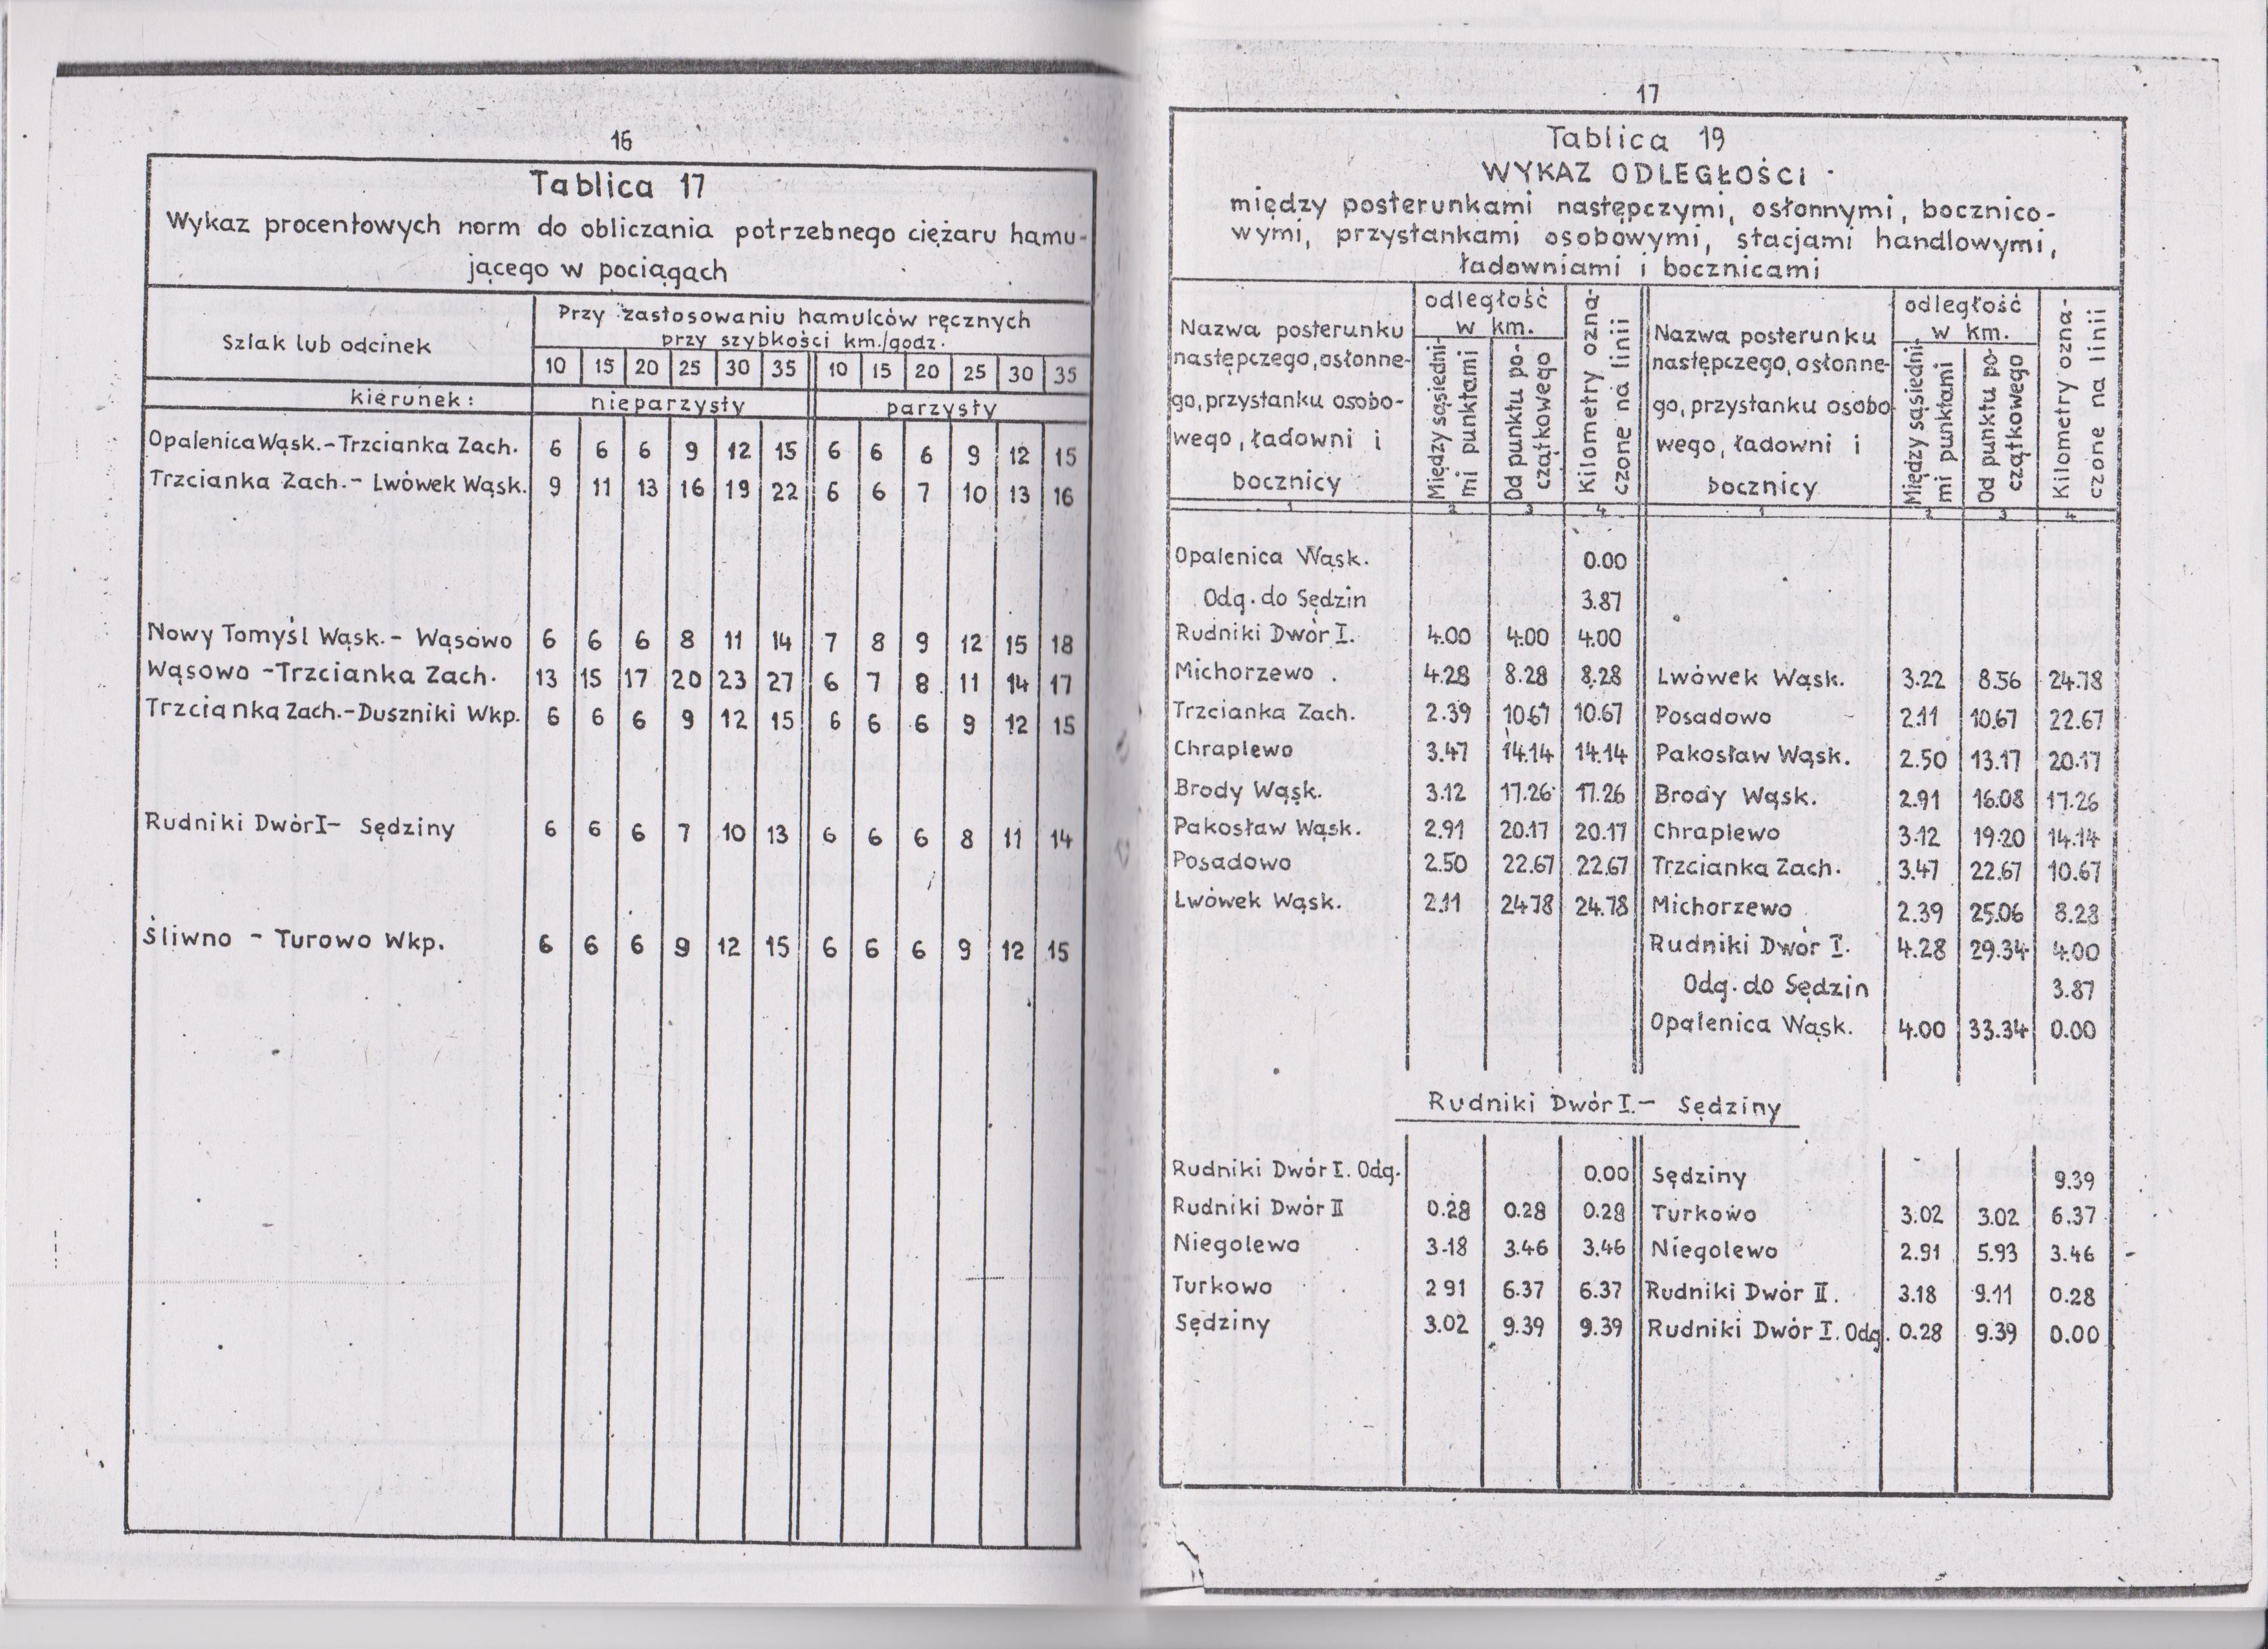 16
Tablica 17
Wykaz procentowych norm do obliczania potrzebnego ciężaru hamu-
jącego w pociągach
Szlak lub odcinek
Przy zastosowaniu hamulców ręcznych
przy szybkości km./godz.
10 15 20 25 30 35 10 15 20 25 30 35
kierunek: nieparzysty parzysty
Opalenica Wąsk.-Trzcianka Zach. 6 6 6 9 12 15 6 6 6 9 12 15
Trzcianka Zach.- Lwówek Wąsk. 9 11 13 16 19 22 6 6 7 10 13 16
Nowy Tomyśl Wąsk.- Wąsowo 6 6 6 8 11 14 7 8 9 12 15 18
Wąsowo -Trzcianka Zach. 13 15 17 20 23 27 6 7 8 11 14 17
Trzcianka Zach.-Duszniki Wkp. 6 6 6 9 12 15 6 6 6 9 12 15
Rudniki Dwór I- Sędziny 6 6 6 7 10 13 6 6 6 8 11 14
Śliwno - Turowo Wkp. 6 6 6 9 12 15 6 6 6 9 12 15
17
Tablica 19
WYKAZ ODLEGŁOŚCI
między posterunkami następczymi, osłonnymi, bocznico-
wymi, przystankami osobowymi, stacjami handlowymi,
ładowniami i bocznicami
Nazwa posterunku
następczego, osłonne-
go, przystanku osobo-
wego, ładowni i
bocznicy
odległość
w km.
Między sąsiedni-
mi punktami
Od punktu po-
czątkowego
Kilometry ozna-
czone na linii
Nazwa posterunku
następczego, osłonne-
go, przystanku osobo
wego, ładowni i
bocznicy
odległość
w km.
Między sąsiedni-
mi punktami
Od punktu po-
czątkowego
Kilometry ozna-
czone na linii
1 2 3 4 1 2 3 4
Opalenica Wąsk. 0.00
Odg. do Sędzin 3.87
Rudniki Dwór I. 4.00 4.00 4.00
Michorzewo . 4.28 8.28 8.28 Lwówek Wąsk. 3.22 8.56 24.78
Trzcianka Zach. 2.39 10.67 10.67 Posadowo 2.11 10.67 22.67
Chraplewo 3.47 14.14 14.14 Pakosław Wąsk. 2.50 13.17 20.17
Brody Wąsk. 3.12 17.26 17.26 Brody Wąsk. 2.91 16.08 17.26
Pakosław Wąsk. 2.91 20.17 20.17 Chraplewo 3.12 19.20 14.14
Posadowo 2.50 22.67 22.67 Trzcianka Zach. 3.47 22.67 10.67
Lwówek Wąsk. 2.11 24.78 24.78 Michorzewo 2.39 25.06 8.28
Rudniki Dwór I. 4.28 29.34 4.00
Odg. do Sędzin 3.87
Opalenica Wąsk. 4.00 33.34 0.00
Rudniki Dwór I.- Sędziny
Rudniki Dwór I. Odg. 0.00 Sędziny 9.39
Rudniki Dwór II 0.28 0.28 0.28 Turkowo 3.02 3.02 6.37
Niegolewo 3.18 3.46 3.46 Niegolewo 2.91 5.93 3.46
Turkowo 2.91 6.37 6.37 Rudniki Dwór II. 3.18 9.11 0.28
Sędziny 3.02 9.39 9.39 Rudniki Dwór I. Odg. 0.28 9.39 0.00